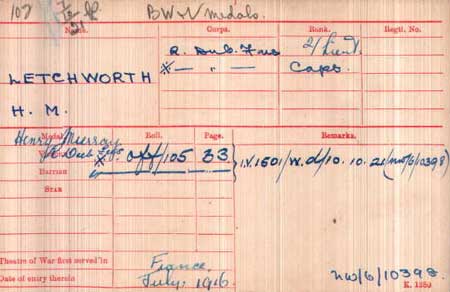 107 BW&V Medals.
Name. Corps. Rank. Regtl. No.
LETCHWORTH R. Dub. Fus 2/Lieut.
※ — " — Capt.
H. M.
Henry Murray
Medal Roll. Page. Remarks.
R. Dub. Fus. ※ Off/105 33 I.V.1601/W. d/10.10.21 (NW/6/10398)
Barrian
Star
Theatre of War first served in France
Date of entry therein July, 1916
NW/6/10398.
K. 1380